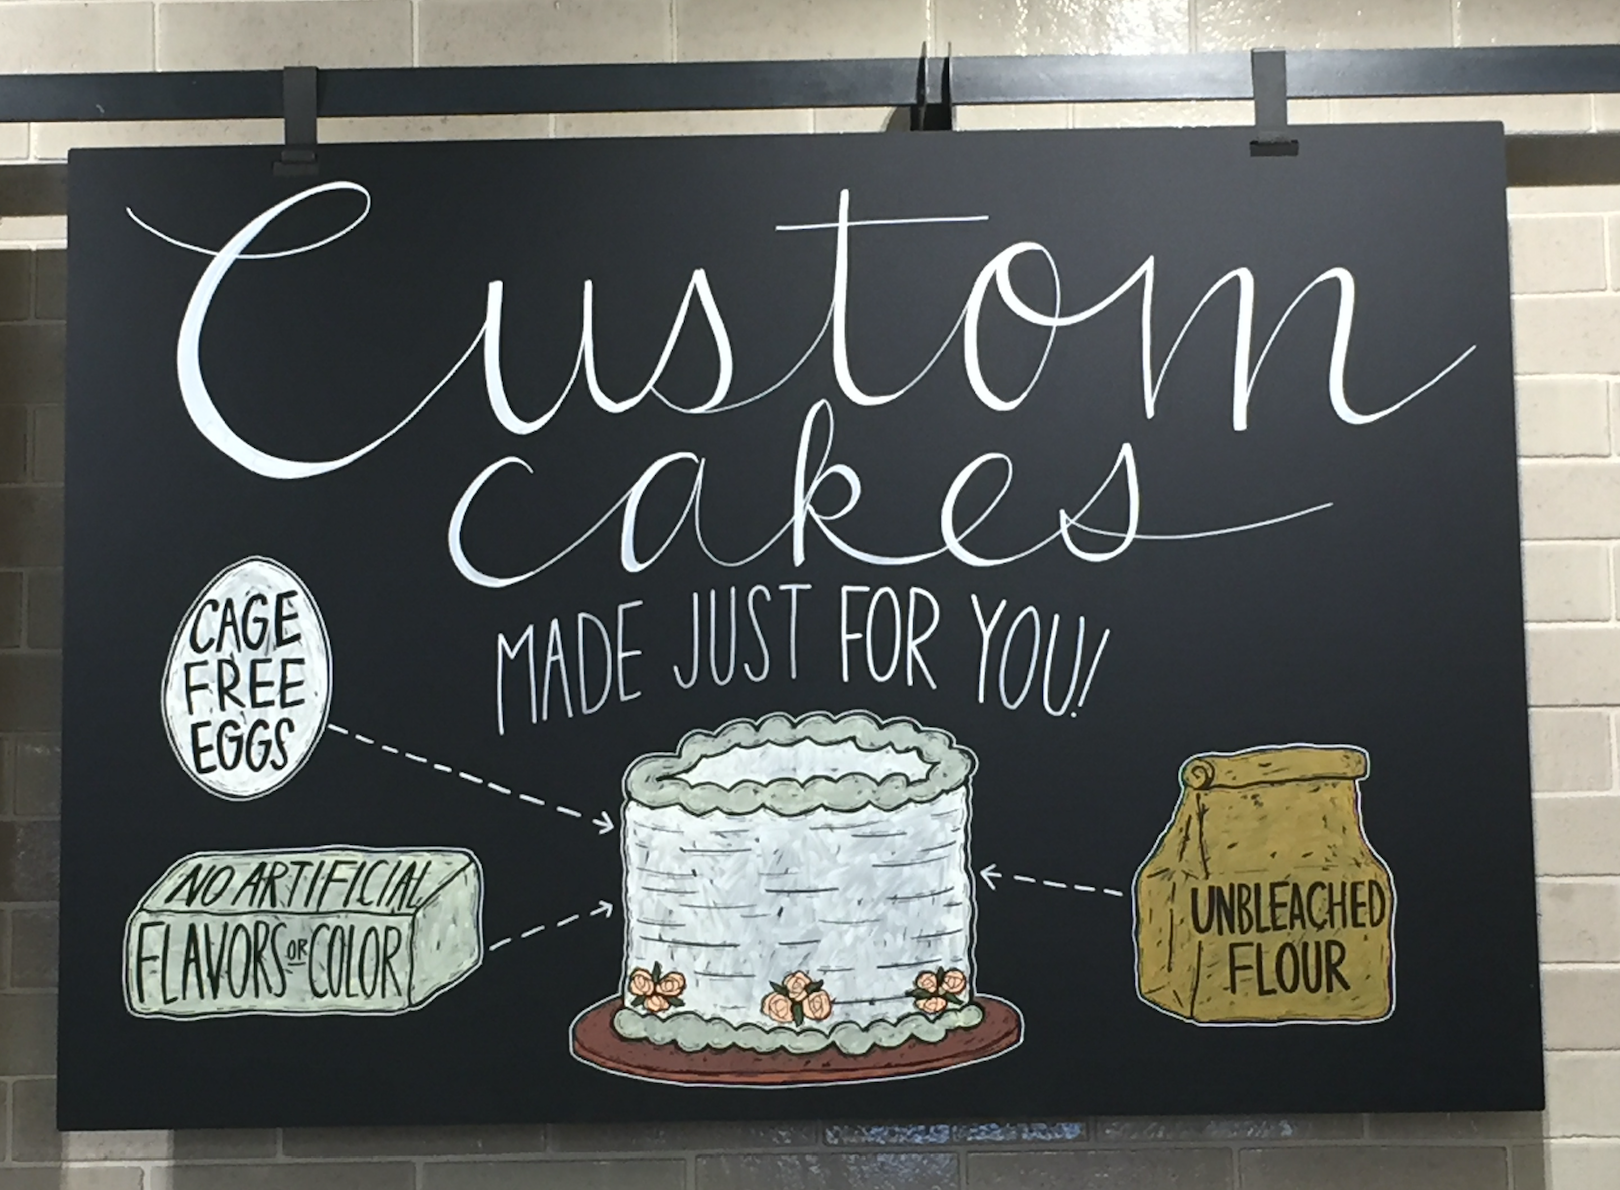 Custom
cakes
MADE JUST FOR YOU!
CAGE
FREE
EGGS
NO ARTIFICIAL
FLAVORS OR COLOR
UNBLEACHED
FLOUR